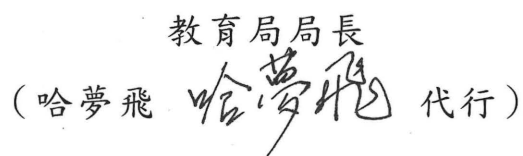 教育局局長
(哈夢飛 哈夢飛 代行)